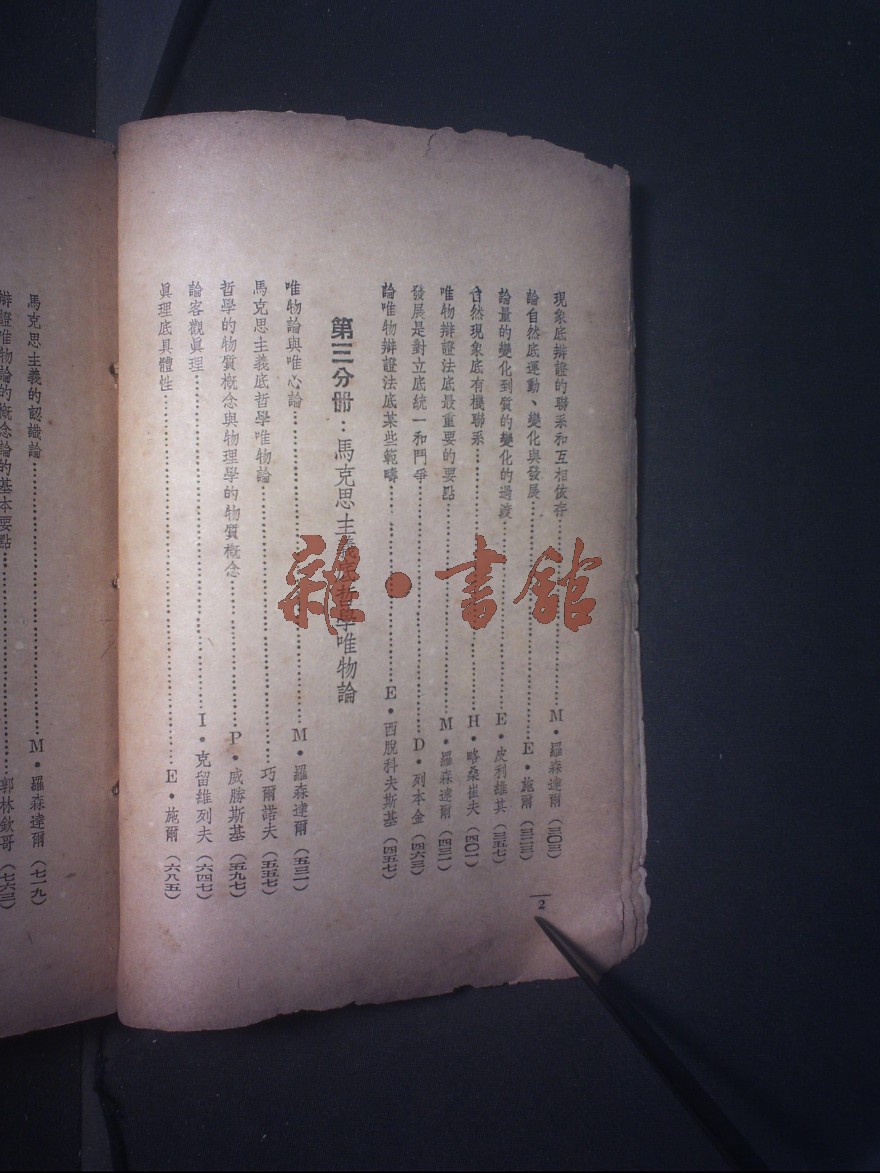 現象底辯證的聯系和互相依存……M·羅森達爾(三〇三)
論自然底運動、變化與發展……E·施爾(三二三)
論量的變化到質的變化的過渡……E·皮利維其(三五七)
自然現象底有機聯系……H·略桑崔夫(四〇一)
唯物辯證法底最重要的要點……M·羅森達爾(四三一)
發展是對立底統一和鬥爭……D·列本金(四六三)
論唯物辯證法底某些範疇……E·西脫科夫斯基(四五七)
第三分冊：馬克思主義底哲學唯物論
唯物論與唯心論……M·羅森達爾(五三一)
馬克思主義底哲學唯物論……巧爾諾夫(五五七)
哲學的物質概念與物理學的物質概念……P·威勝斯基(五九七)
論客觀眞理……I·克留維列夫(六四七)
眞理底具體性……E·施爾(六八五)
2
馬克思主義的認識論……M·羅森達爾(七一九)
辯證唯物論的概念論的基本要點……郭林欽哥(七六三)
雜·書館